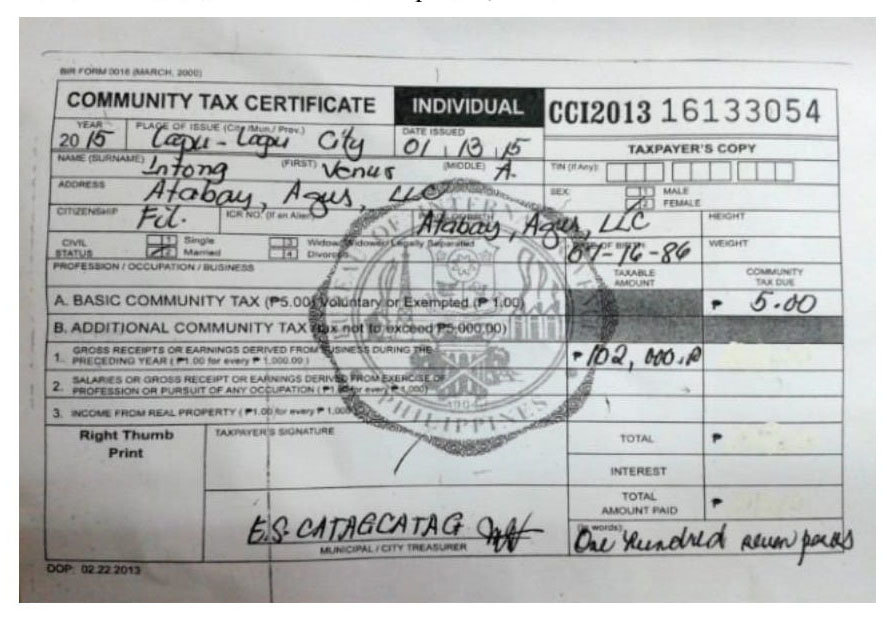 BIR FORM 0016 (MARCH, 2000)
COMMUNITY TAX CERTIFICATE INDIVIDUAL CCI2013 16133054
YEAR PLACE OF ISSUE (City /Mun./ Prov.) DATE ISSUED
2015 Lapu-Lapu City 01 13 15 TAXPAYER'S COPY
NAME (SURNAME) Intong (FIRST) Venus (MIDDLE) A. TIN (If Any):
ADDRESS Atabay, Agus, LLC SEX: 1 MALE
2 FEMALE
CITIZENSHIP Fil. ICR NO. (If an Alien) Atabay, Agus, LLC HEIGHT
CIVIL STATUS 1 Single 3 Widow/Widower/Legally Separated DATE OF BIRTH 07-16-86 WEIGHT
2 Married 4 Divorced
PROFESSION / OCCUPATION / BUSINESS TAXABLE AMOUNT COMMUNITY TAX DUE
A. BASIC COMMUNITY TAX (₱5.00) Voluntary or Exempted (₱ 1.00) ₱ 5.00
B. ADDITIONAL COMMUNITY TAX (tax not to exceed ₱5,000.00)
1. GROSS RECEIPTS OR EARNINGS DERIVED FROM BUSINESS DURING THE
PRECEDING YEAR (₱1.00 for every ₱ 1,000.00) ₱ 102, 000.
2. SALARIES OR GROSS RECEIPT OR EARNINGS DERIVED FROM EXERCISE OF
PROFESSION OR PURSUIT OF ANY OCCUPATION (₱1.00 for every ₱ 1,000)
3. INCOME FROM REAL PROPERTY (₱1.00 for every ₱ 1,000)
Right Thumb Print TAXPAYER'S SIGNATURE TOTAL ₱
INTEREST
TOTAL AMOUNT PAID ₱
E.S. CATAGCATAG (in words)
MUNICIPAL / CITY TREASURER One Hundred seven pesos
DOP: 02.22.2013
BUREAU OF INTERNAL REVENUE
PHILIPPINES